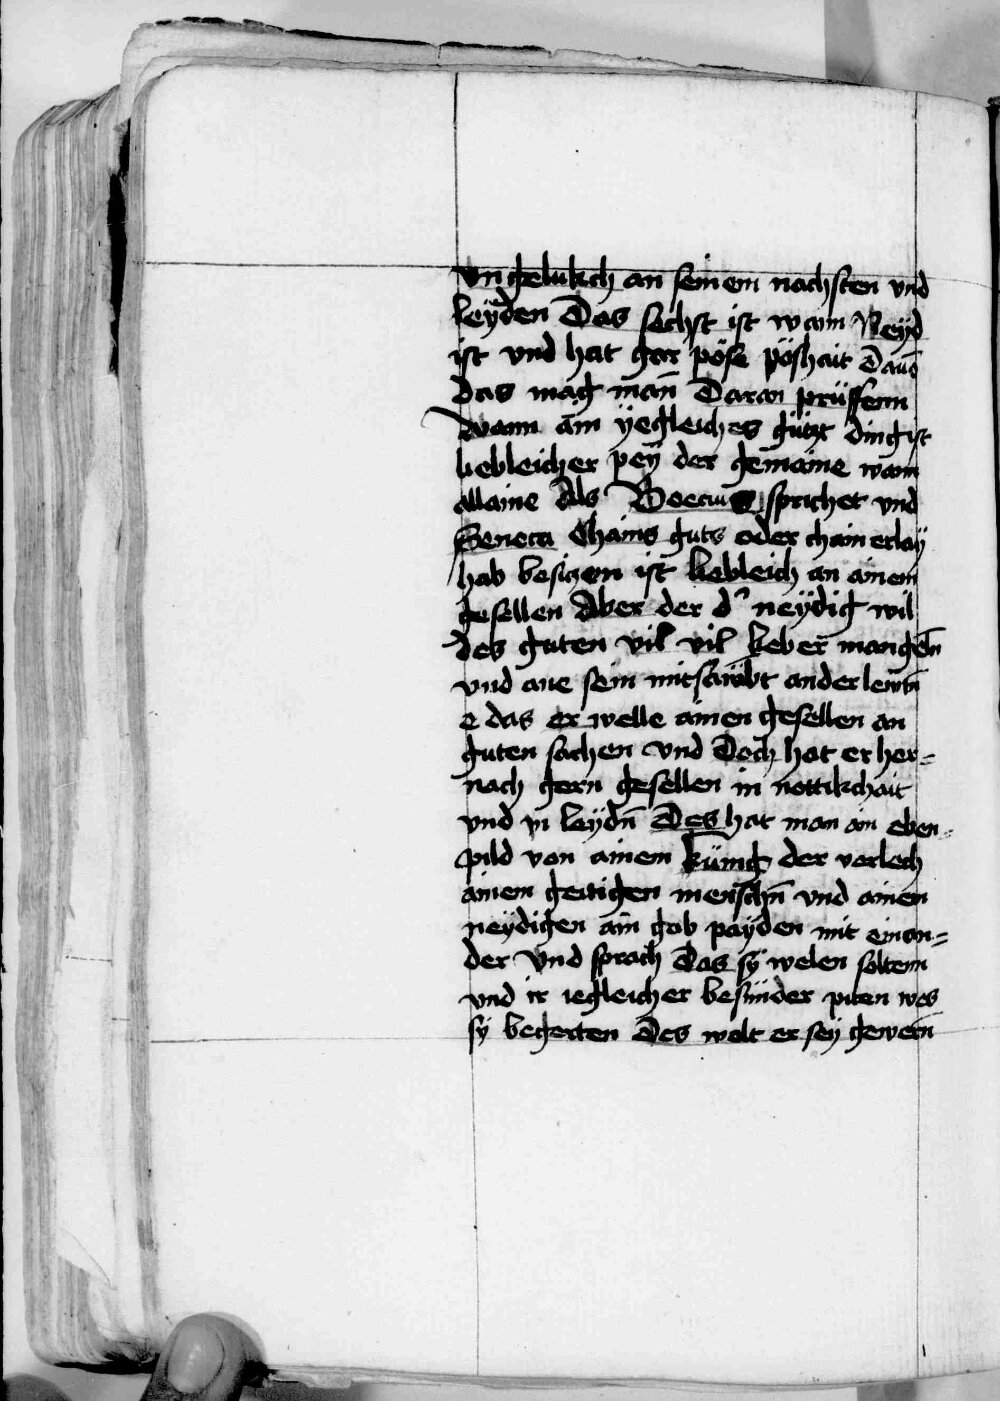 Vngelukch an seinem nachsten vnd
leyden Das sechst ist wann Neyd
ist vnd hat gar pöse pöshait Dauō
das mag man̄ Daran prüffenn
wann ain yegleiches gutz ding ist
liebleicher pey der gemaine wann
allaine Als Boecius sprichet vnd
Seneca Chains guts oder chainerlay
hab besiczen ist liebleich an ainem
gesellen Aber der d' neydig wil
des guten vil vil lieber mangeln̄
vnd ane sein mitsambt andern lewtn̄
e das er welle ainen gesellen an
guten sachen vnd Doch hat er her=
nach gern gesellen in nottikchait
vnd in leydn̄ Des hat man ain eben=
pild von ainem künig der verlech
ainem geitigen menschn̄ vnd ainen
neydigen ain gab payden mit einan=
der Vnd sprach Das sy welen soltenn
vnd ir iegleicher besunder piten wes
sy begerten Des wolt er sey gewern̄